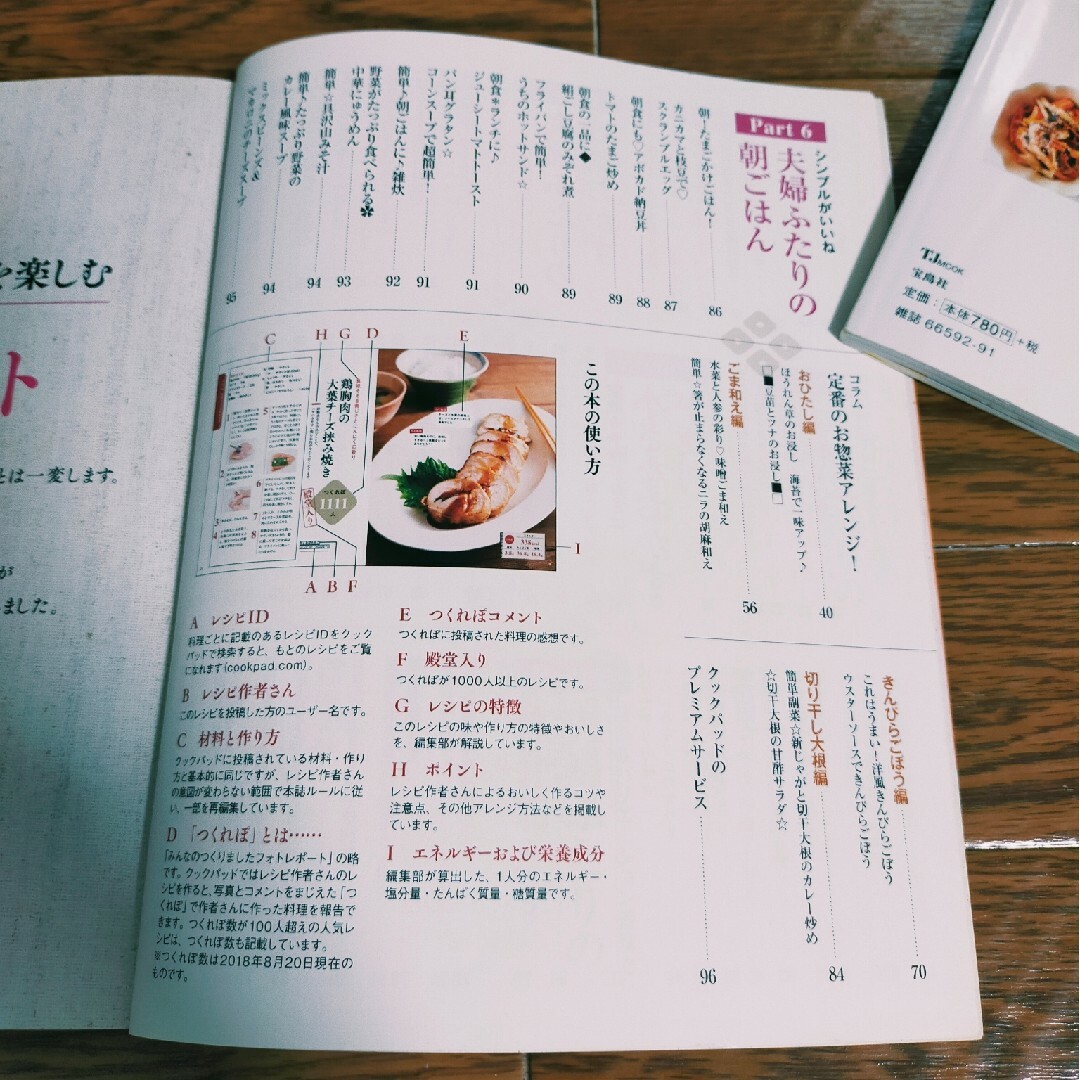 Part 6
シンプルがいいね
夫婦ふたりの
朝ごはん
朝ーたまごかけごはんー 86
カニカマと枝豆で♡
スクランブルエッグ 87
朝食にも♡アボカド納豆丼 88
トマトのたまご炒め 89
朝食の一品に◆
絹ごし豆腐のみそれ煮 89
フライパンで簡単!
うちのホットサンド☆ 90
朝食*ランチに♪
ジューシートマトトースト 91
パン耳グラタン☆
コーンスープで超簡単! 91
簡単♪朝ごはんに♪雑炊 92
野菜がたっぷり食べられる✿
中華にゅうめん 93
簡単☆具沢山みそ汁 94
簡単♪たっぷり野菜の
カレー風味スープ 94
ミックスビーンズ&
マカロニのチーズスープ 95
コラム
定番のお惣菜アレンジ!
おひたし編
ほうれん草のお浸し 海苔で一味アップ♪ 40
□■豆苗とツナのお浸し■□
ごま和え編
水菜と人参の彩り♡味噌ごま和え 56
簡単☆箸が止まらなくなるニラの胡麻和え
きんぴらごぼう編
これはうまい!洋風きんぴらごぼう 70
ウスターソースできんぴらごぼう
切り干し大根編
簡単副菜☆新じゃがと切干大根のカレー炒め 84
☆切干大根の甘酢サラダ☆
クックパッドの
プレミアムサービス 96
この本の使い方
C H G D E
鶏胸肉の
大葉チーズ挟み焼き
つくれぽ
1111
殿堂入り
1 2 3 4 5 6 7 8
A B F I
A レシピID
料理ごとに記載のあるレシピIDをクック
パッドで検索すると、もとのレシピをご覧
になれます(cookpad.com)。
B レシピ作者さん
このレシピを投稿した方のユーザー名です。
C 材料と作り方
クックパッドに投稿されている材料・作り
方と基本的に同じですが、レシピ作者さん
の意図が変わらない範囲で本誌ルールに従
い、一部を再編集しています。
D 「つくれぽ」とは……
「みんなのつくりましたフォトレポート」の略
です。クックパッドではレシピ作者さんのレ
シピを作ると、写真とコメントをまじえた「つ
くれぽ」で作者さんに作った料理を報告で
きます。つくれぽ数が100人超えの人気レ
シピは、つくれぽ数も記載しています。
※つくれぽ数は2018年8月20日現在の
ものです。
E つくれぽコメント
つくれぽに投稿された料理の感想です。
F 殿堂入り
つくれぽが1000人以上のレシピです。
G レシピの特徴
このレシピの味や作り方の特徴やおいしさ
を、編集部が解説しています。
H ポイント
レシピ作者さんによるおいしく作るコツや
注意点、その他アレンジ方法などを掲載し
ています。
I エネルギーおよび栄養成分
編集部が算出した、1人分のエネルギー・
塩分量・たんぱく質量・糖質量です。
を楽しむ
ト
そは一変します。
が
ました。
TJMOOK
宝島社
定価:本体780円+税
雑誌 66592-91